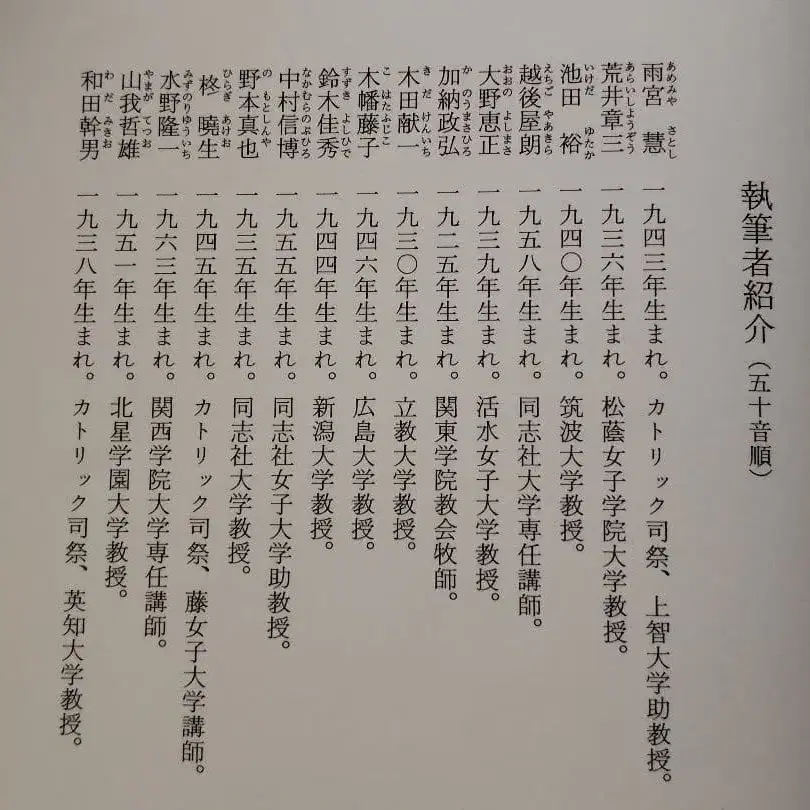 執筆者紹介（五十音順）
あめみや さとし
雨宮 慧 一九四三年生まれ。カトリック司祭、上智大学助教授。
あらいしょうぞう
荒井章三 一九三六年生まれ。松蔭女子学院大学教授。
いけだ ゆたか
池田 裕 一九四〇年生まれ。筑波大学教授。
えちご やあきら
越後屋朗 一九五八年生まれ。同志社大学専任講師。
おおの よしまさ
大野恵正 一九三九年生まれ。活水女子大学教授。
か のうまさひろ
加納政弘 一九二五年生まれ。関東学院教会牧師。
き だ けんいち
木田献一 一九三〇年生まれ。立教大学教授。
こ はたふじこ
木幡藤子 一九四六年生まれ。広島大学教授。
すずき よしひで
鈴木佳秀 一九四四年生まれ。新潟大学教授。
なかむらのぶひろ
中村信博 一九五五年生まれ。同志社女子大学助教授。
の もとしんや
野本真也 一九三五年生まれ。同志社大学教授。
ひらぎ あけお
柊 曉生 一九四五年生まれ。カトリック司祭、藤女子大学講師。
みずのりゅういち
水野隆一 一九六三年生まれ。関西学院大学専任講師。
やまが てつお
山我哲雄 一九五一年生まれ。北星学園大学教授。
わ だ みきお
和田幹男 一九三八年生まれ。カトリック司祭、英知大学教授。